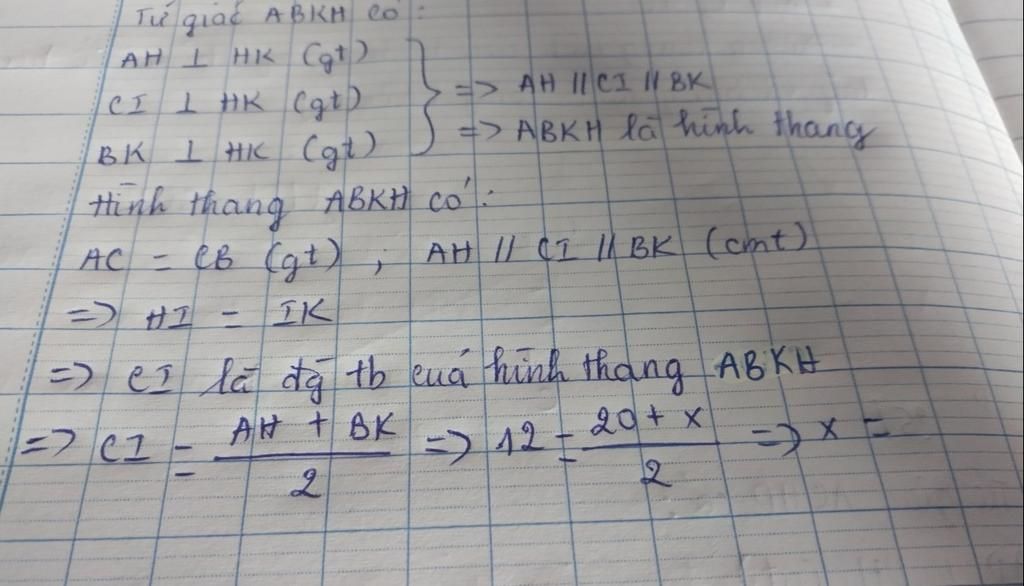 Tứ giác ABKH có:
AH ⊥ HK (gt)
CI ⊥ HK (gt)
BK ⊥ HK (gt)
=> AH // CI // BK
=> ABKH là hình thang
Hình thang ABKH có:
AC = CB (gt), AH // CI // BK (cmt)
=> HI = IK
=> CI là đg tb cuả hình thang ABKH
=> CI = (AH + BK)/2 => 12 = (20 + x)/2 => x =